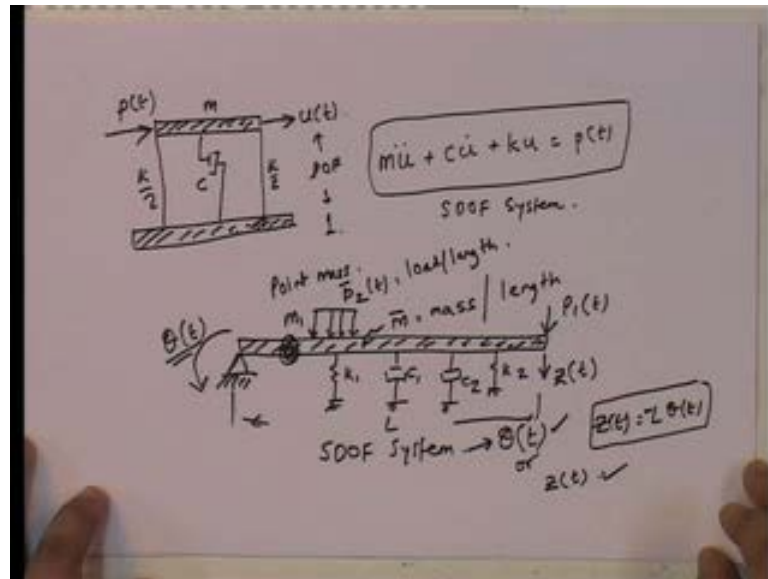 p(t)
m
u(t)
k/2
c
k/2
DOF
1
mü + cu̇ + ku = p(t)
SDOF System.
Point mass.
p̄₂(t), load/length.
m₁
m̄, mass/length
P₁(t)
θ(t)
k₁
c₁
c₂
k₂
z(t)
L
SDOF System → θ(t) ✓
or
z(t) ✓
z(t) = L θ(t)